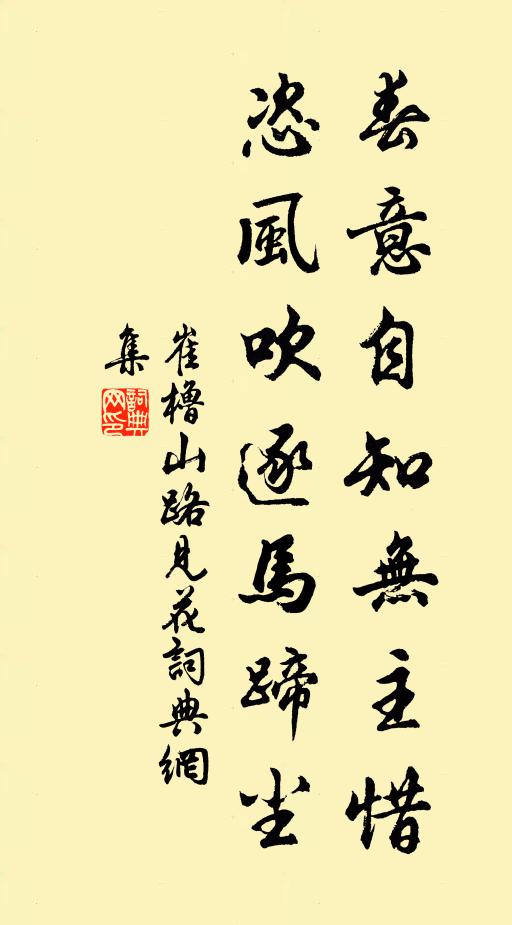 春意自知無主惜
恣風吹逐馬蹄尘
崔櫓山路見花詞典網
集
詞典
网印